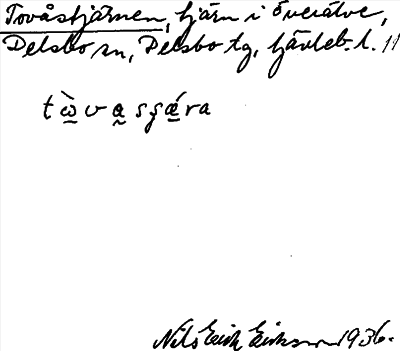 Tovåstjärnen, tjärn i Överälve,
Delsbo sn, Delsbo tg, Gävleb. l. 11
t ὼ v a s ʂ ǽ r a
Nils Erik Eriksson 1936.